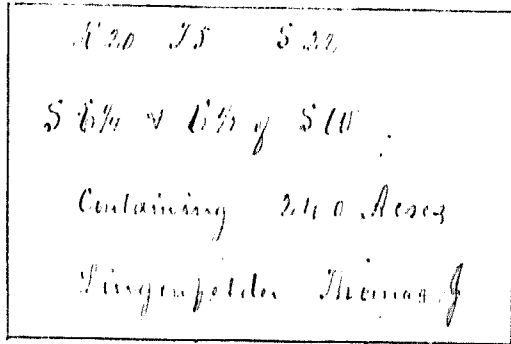 R 20 T5 S 22
S E¼ & E½ of SW
Containing 240 Acres
Lingenfelder Thomas J